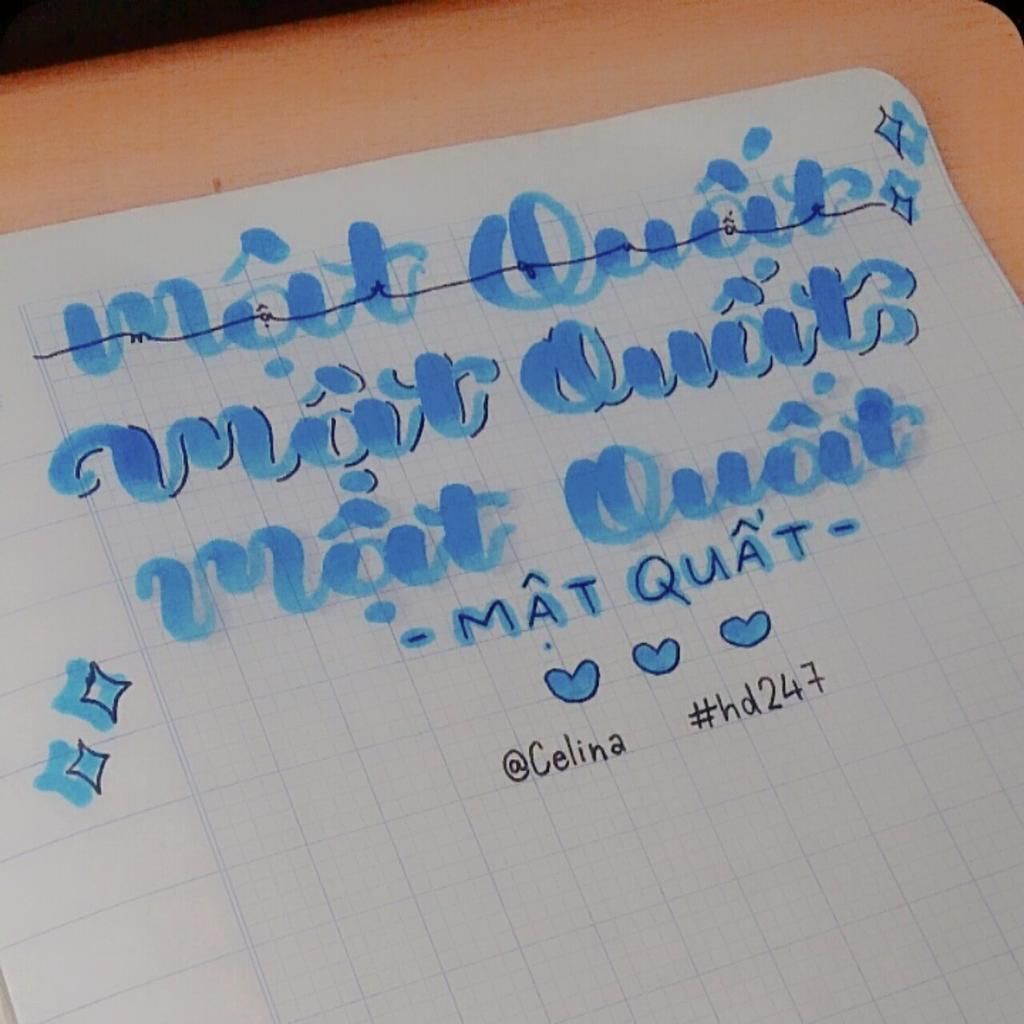 Mật Quất
m ậ t Q u ấ t
Mật Quất
Mật Quất
- MẬT QUẤT -
@Celina #hd247